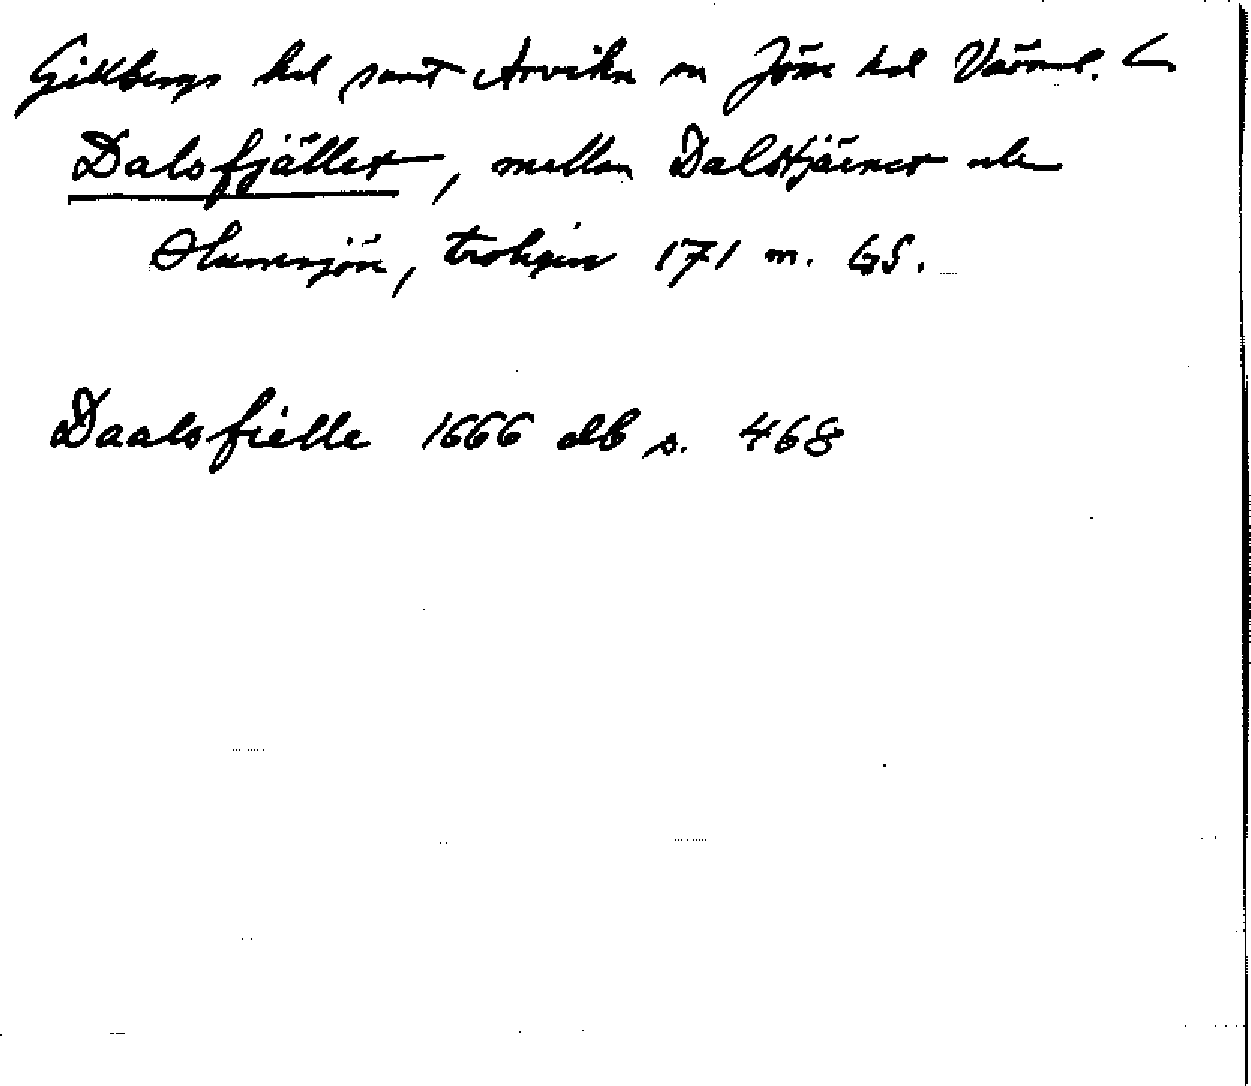 Gillbergs hd samt Arvika o Jösse hd Värml. L
Dalsfjället, mellan Dalstjärnet och
Humsjön, troligen 171 m. GS.
Daalsfielle 1666 dlb s. 468